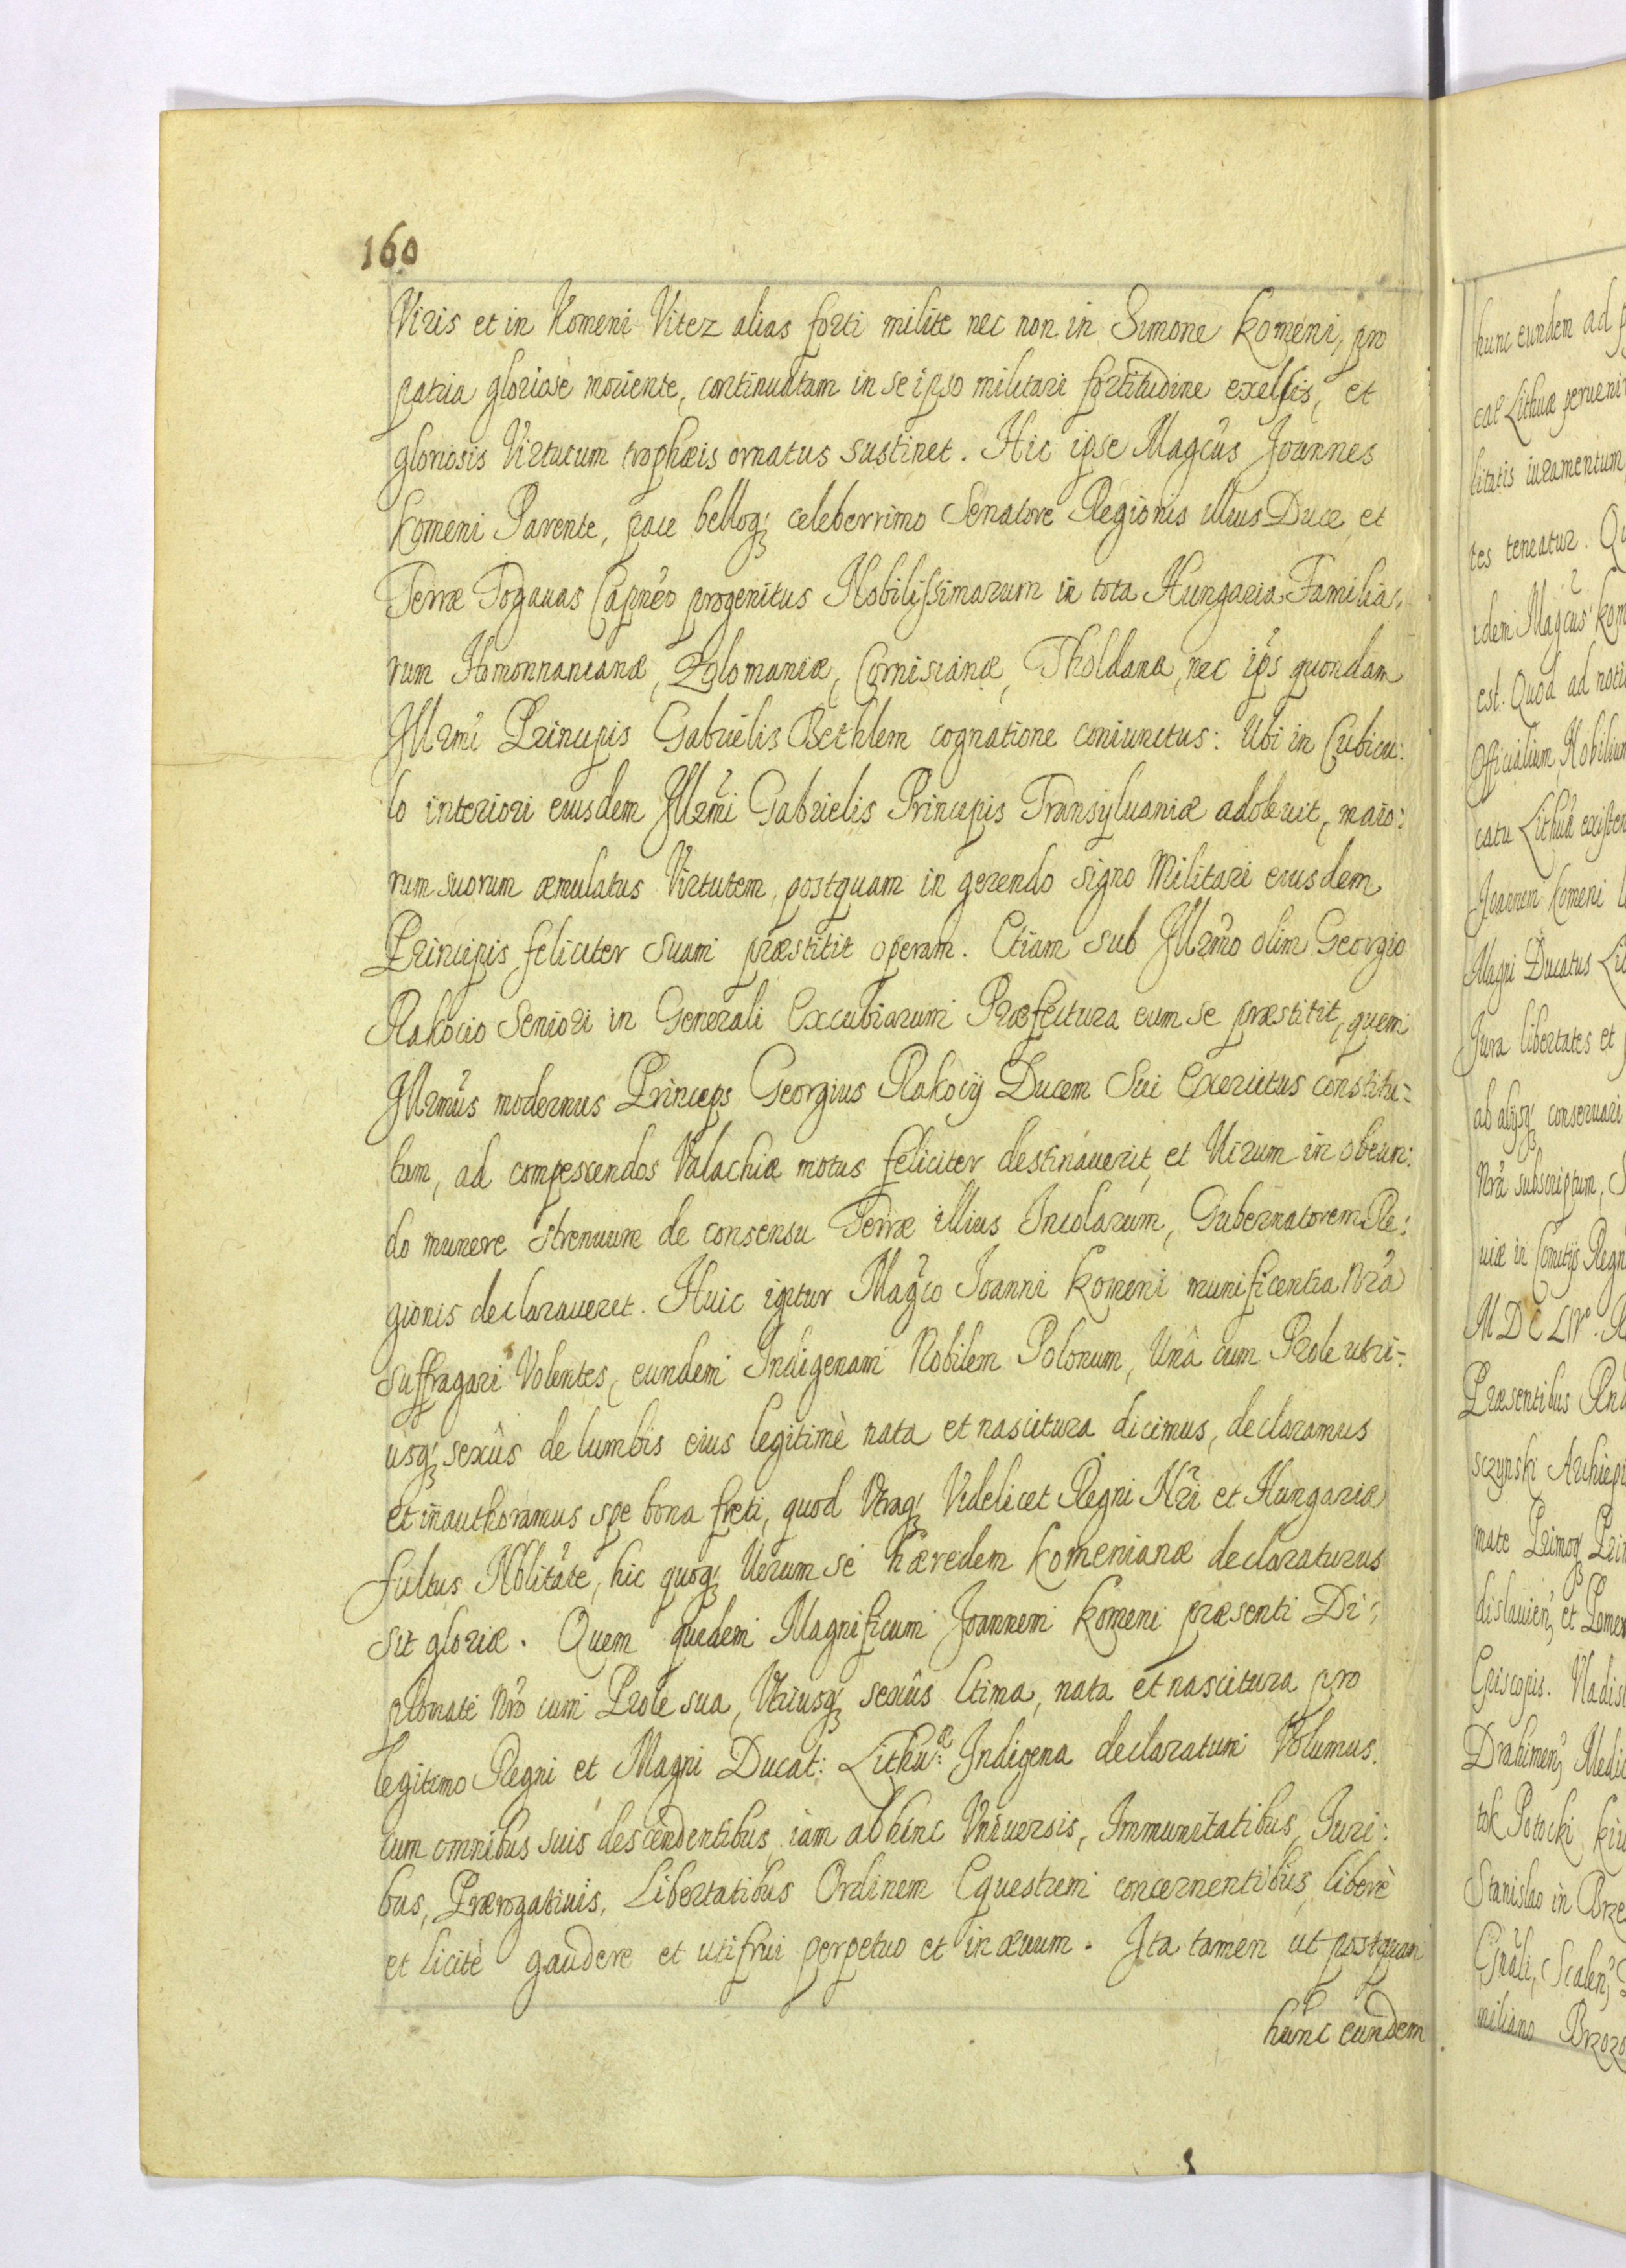 160
Viris et in Komeni Vitez alias forti milite nec non in Simone Komeni, pro
patria gloriosè moriente, continuatam in se ipso militari fortitudine exelsis, et
gloriosis Virtutum trophæis ornatus sustinet. Hic ipse Magcus Joannes
Komeni Parente, pace belloq; celeberrimo Senatore Regionis illius Duce et
Terræ Fogaras Capneo progenitus Nobilissimarum in tota Hungaria Familia-
rum Homonnancanæ, Zolomaniæ, Cornisianæ, Tholdana, nec ips quondam
Illrmi Principis Gabrielis Bethlem cognatione coniunctus: Ubi in Cubicu:
lo interiori eiusdem Illrmi Gabrielis Principis Transyluaniæ adoleuit, maio:
rum suorum æmulatus Virtutem, postquam in gerendo signo Militari eiusdem
Principis feliciter suam præstitit operam. Etiam sub Illrmo olim Georgio
Rakocio Seniori in Generali Excubiarum Præfectura eum se præstitit, quem
Illrmus modernus Princeps Georgius Rakocij Ducem Sui Exercitus constitu-
tum, ad compescendos Valachiæ motus feliciter destinauerit, et Uirum in obeun:
do munere strenuum de consensu Terræ illius Incolarum, Gubernatorem Re:
gionis declaraueret. Huic igitur Magco Joanni Komeni munificentia Nra
suffragari Volentes, eundem Indigenam Nobilem Polonum, Unâ cum Prole utri-
usq; sexûs de lumbis eius legitimè nata et nascitura dicimus, declaramus
et inauthoramus spe bona freti, quod Utraq; Videlicet Regni Nri et Hungaria
fultus Nblitate, hic quoq; Uerum se hæredem Komenianæ declaraturus
sit gloriæ. Quem quidem Magnificum Joannem Komeni præsenti Di-
plomate Nro cum Prole sua, Utriusq; sexûs Ltima, nata et nascitura pro
legitimo Regni et Magni Ducat: Lithuæ: Indigena declaratum Volumus.
cum omnibus suis descendentibus iam abhinc Vniuersis, Immunitatibus, Juri:
bus, Prærogatiuis, Libertatibus Ordinem Equestrem concernentibus, liberè
et licitè gaudere et utifrui perpetuo et in æuum. Ita tamen ut postquam
hunc eundem
hunc eundem ad
cat Lithuæ perueni
litatis iuramentum
tes teneatur. Qu
idem Magcus Kom
est. Quod ad noti
Officialium, Nobilium
catu Lithuæ existen
Joannem Komeni
Magni Ducatus Lit
Jura libertates et
ab alijsq; conseruari
Nra subscriptum, S
uiæ in Comitijs Regn
MDCLIV. R
Præsentibus And
sczynski Archiepi
mate Primoq; Prin
dislauien; et Pomer
Episcopis. Vladisl
Drahimen; Medic
tok Potocki Kiu
Stanislao in Brze
Gnali, Scalen;
miliano Brzozo